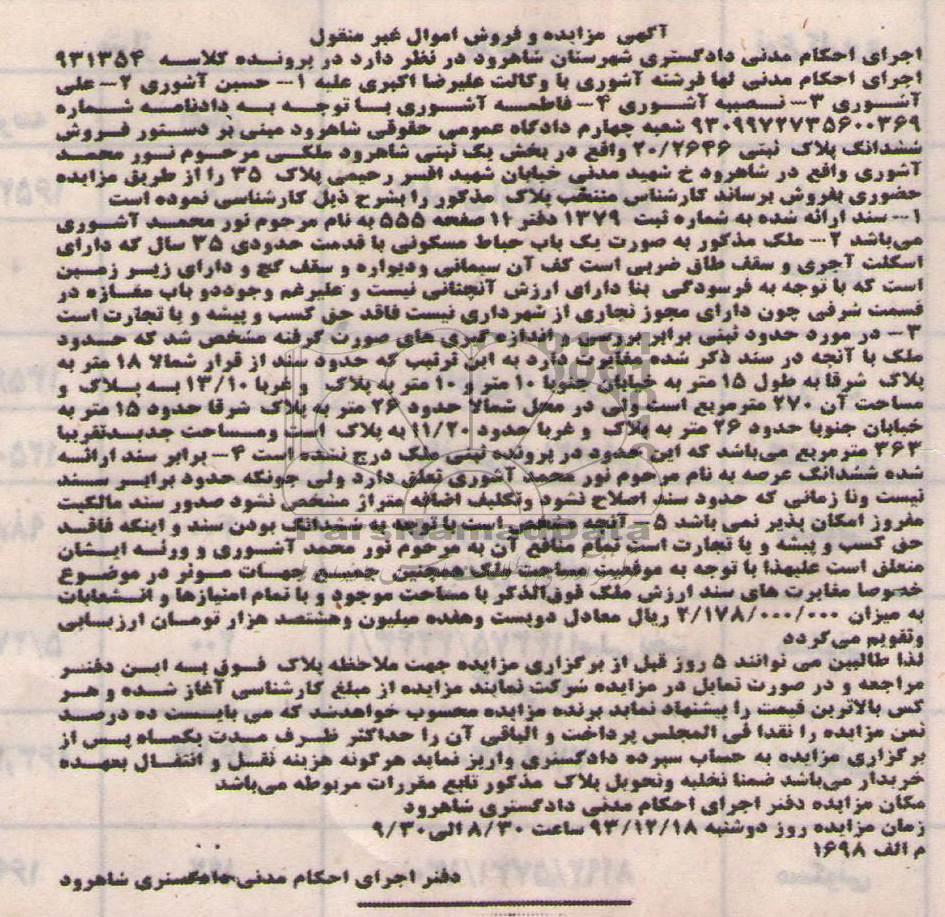 آگهی مزایده و فروش اموال غیر منقول
اجرای احکام مدنی دادگستری شهرستان شاهرود در نظر دارد در پرونده کلاسه ۹۳۱۳۵۴
اجرای احکام مدنی لها فرشته آشوری با وکالت علیرضا اکبری علیه ۱- حسین آشوری ۲- علی
آشوری ۳- نصیبه آشوری ۴- فاطمه آشوری با توجه به دادنامه شماره
۹۳۰۹۹۷۲۷۳۵۶۰۰۳۶۹ شعبه چهارم دادگاه عمومی حقوقی شاهرود مبنی بر دستور فروش
ششدانگ پلاک ثبتی ۲۰/۲۶۴۶ واقع در بخش یک ثبتی شاهرود ملکی مرحوم نور محمد
آشوری واقع در شاهرود خ شهید مدنی خیابان شهید افسر رحیمی پلاک ۳۵ را از طریق مزایده
حضوری بفروش برساند کارشناس منتخب پلاک مذکور را بشرح ذیل کارشناسی نموده است
۱- سند ارائه شده به شماره ثبت ۱۳۷۹ دفتر ۱۱ صفحه ۵۵۵ به نام مرحوم نور محمد آشوری
می‌باشد ۲- ملک مذکور به صورت یک باب حیاط مسکونی با قدمت حدودی ۳۵ سال که دارای
اسکلت آجری و سقف طاق ضربی است کف آن سیمانی ودیواره و سقف گچ و دارای زیر زمین
است که با توجه به فرسودگی بنا دارای ارزش آنچنانی نیست و علیرغم وجوددو باب مغازه در
قسمت شرقی چون دارای مجوز تجاری از شهرداری نیست فاقد حق کسب و پیشه و یا تجارت است
۳- در مورد حدود ثبتی برابر بررسی و اندازه گیری های صورت گرفته مشخص شد که حدود
ملک با آنچه در سند ذکر شده مغایرت دارد به این ترتیب که حدود سند از قرار شمالا ۱۸ متر به
پلاک شرقا به طول ۱۵ متر به خیابان جنوبا ۱۰ متر ۱۰ متر به پلاک و غربا ۱۳/۱۰ به پلاک و
مساحت آن ۲۷۰ مترمربع است ولی در محل شمالا حدود ۲۶ متر به پلاک شرقا حدود ۱۵ متر به
خیابان جنوبا حدود ۲۶ متر به پلاک و غربا حدود ۱۱/۲۰ به پلاک است ومساحت جدیدتقریبا
۳۶۳ مترمربع می‌باشد که این حدود در پرونده ثبتی ملک درج نشده است ۴- برابر سند ارائه
شده ششدانگ عرصه به نام مرحوم نور محمد آشوری تعلق دارد ولی چونکه حدود برابر سند
نیست وتا زمانی که حدود سند اصلاح نشود وتکلیف اضافه متراژ مشخص نشود صدور سند مالکیت
مفروز امکان پذیر نمی باشد ۵- آنچه مشخص است با توجه به ششدانگ بودن سند و اینکه فاقد
حق کسب و پیشه و یا تجارت است تمام منافع آن به مرحوم نور محمد آشوری و ورثه ایشان
متعلق است علیهذا با توجه به موقعیت مساحت ملک همچنین جمیع جهات موثر در موضوع
خصوصا مغایرت های سند ارزش ملک فوق‌الذکر با مساحت موجود و با تمام امتیازها و انشعابات
به میزان ۲/۱۷۸/۰۰۰/۰۰۰ ریال معادل دویست وهفده میلیون وهشتصد هزار تومسان ارزیابی
وتقویم می‌گردد
لذا طالبین می توانند ۵ روز قبل از برگزاری مزایده جهت ملاحظه پلاک فوق به این دفتر
مراجعه و در صورت تمایل در مزایده شرکت نمایند مزایده از مبلغ کارشناسی آغاز شده و هر
کس بالاترین قیمت را پیشنهاد نماید برنده مزایده محسوب خواهدشد که می بایست ده درصد
ثمن مزایده را نقدا فی المجلس پرداخت و الباقی آن را حداکثر ظرف مدت یکماه پس از
برگزاری مزایده به حساب سپرده دادگستری واریز نماید هرگونه هزینه نقل و انتقال بعهده
خریدار می‌باشد ضمنا تخلیه وتحویل پلاک مذکور تابع مقررات مربوطه می‌باشد
مکان مزایده دفتر اجرای احکام مدنی دادگستری شاهرود
زمان مزایده روز دوشنبه ۹۳/۱۲/۱۸ ساعت ۸/۳۰ الی۹/۳۰
م الف ۱۶۹۸
دفتر اجرای احکام مدنی دادگستری شاهرود
ParsNamadData